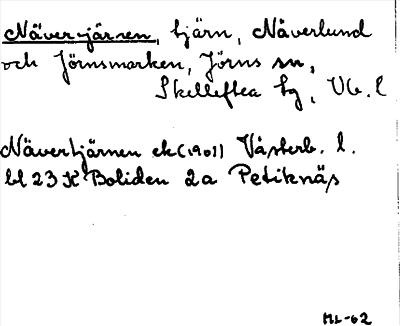 Näver-järnen, tjärn, Nåverlund
och Jörnsmarken, Jörns sn,
Skelleftea tg, Vb. l
Nävertjärnen ek(1901) Västerb. l.
bl 23 K Boliden 2a Petiknäs
ML-62